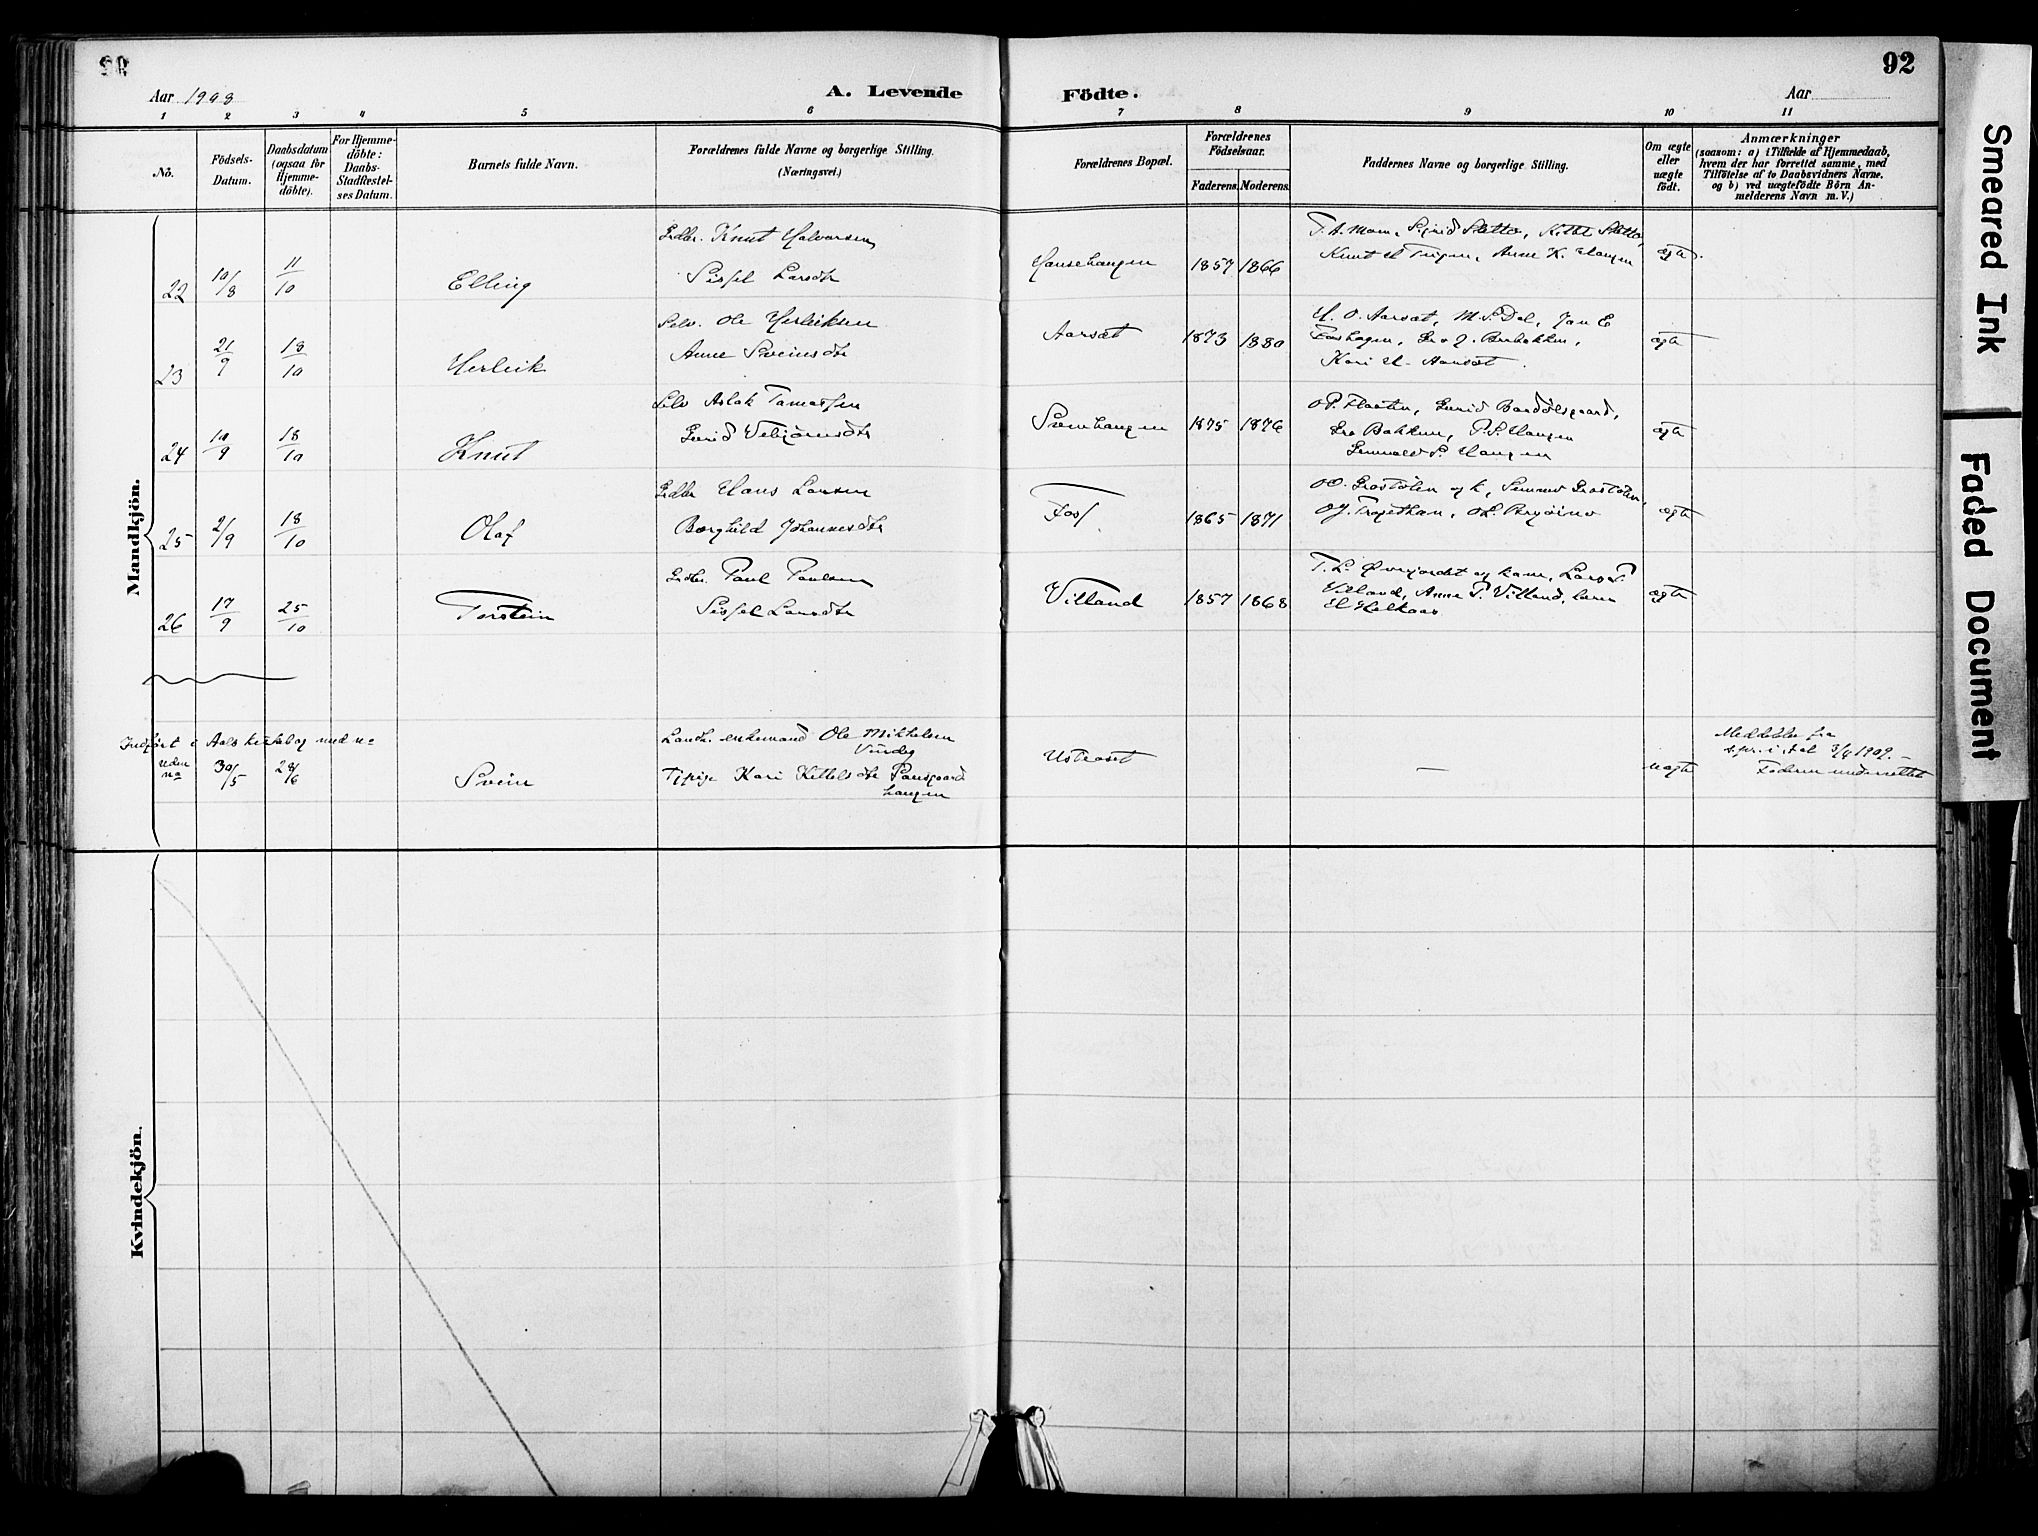 92
Aar 1908
A. Levende Födte.
Aar
1 2 3 4 5 6 7 8 9 10 11
No.
Födsels-
Datum.
Daabsdatum
(ogsaa for
Hjemme-
döbte).
For Hjemme-
döbte:
Daabs-
Stadfæstel-
ses Datum.
Barnets fulde Navn.
Forældrenes fulde Navne og borgerlige Stilling.
(Næringsvei.)
Forældrenes Bopæl.
Forældrenes
Födselsaar.
Faderens. Moderens.
Faddernes Navne og borgerlige Stilling.
Om ægte
eller
uægte
födt.
Anmærkninger
(saasom: a) i Tilfælde af Hjemmedaab,
hvem der har forrettet samme, med
Tilföielse af to Daabsvidners Navne,
og b) ved uægtefödte Börn An-
melderens Navn m. V.)
Mandkjön.
22 10/8 11/10 Elling
Grdbr. Knut Halvorsen
Sissel Larsdtr
Hansehaugen 1857 1866
T. A. Moen, Sigrid Slette, Kittil Slette,
Knut H. , Anne K. Haugen
ægte
23 21/9 18/10 Herleik
Selv. Ole Herleiksen
Anne Sveinsdtr
Aarset 1873 1880
H. O. Aarset, M. S. Dal, Jan E
Foshagen, Gro J. ,
Kari H. Aarset
ægte
24 10/9 18/10 Knut
Selv Aslak Tamassen
Gurid Vebjørnsdtr
Sveinhaugen 1875 1876
O P. Flaaten, Gurid Bardølsgaard,
Gro Bakken, P. S. Haugen
S. Haugen
ægte
25 2/9 18/10 Olaf
Grdbr Hans Larsen
Borghild Johannesdtr
Foss 1865 1871
O O. Grøstølen og k,
ægte
26 17/9 25/10 Torstein
Grdbr. Paul Paulsen
Sissel Larsdtr
Villand 1857 1868
T. L. Øvrejordet og kone, Lars P.
Villand, Anne P. Villand,
ægte
Indført i Aals kirkebog med no
uden
no 30/5 28/6 Svein
Landh. enkemand Ole Mikkelsen
Vindeg
Tjpige Kari Kittelsdtr Pansgaard
haugen
Usteoset
—
uægte
Meddelelse fra
s.pr. i Aal 3/4 1909. —
Faderen underrettet
Kvindekjön.
Smeared Ink
Faded Document